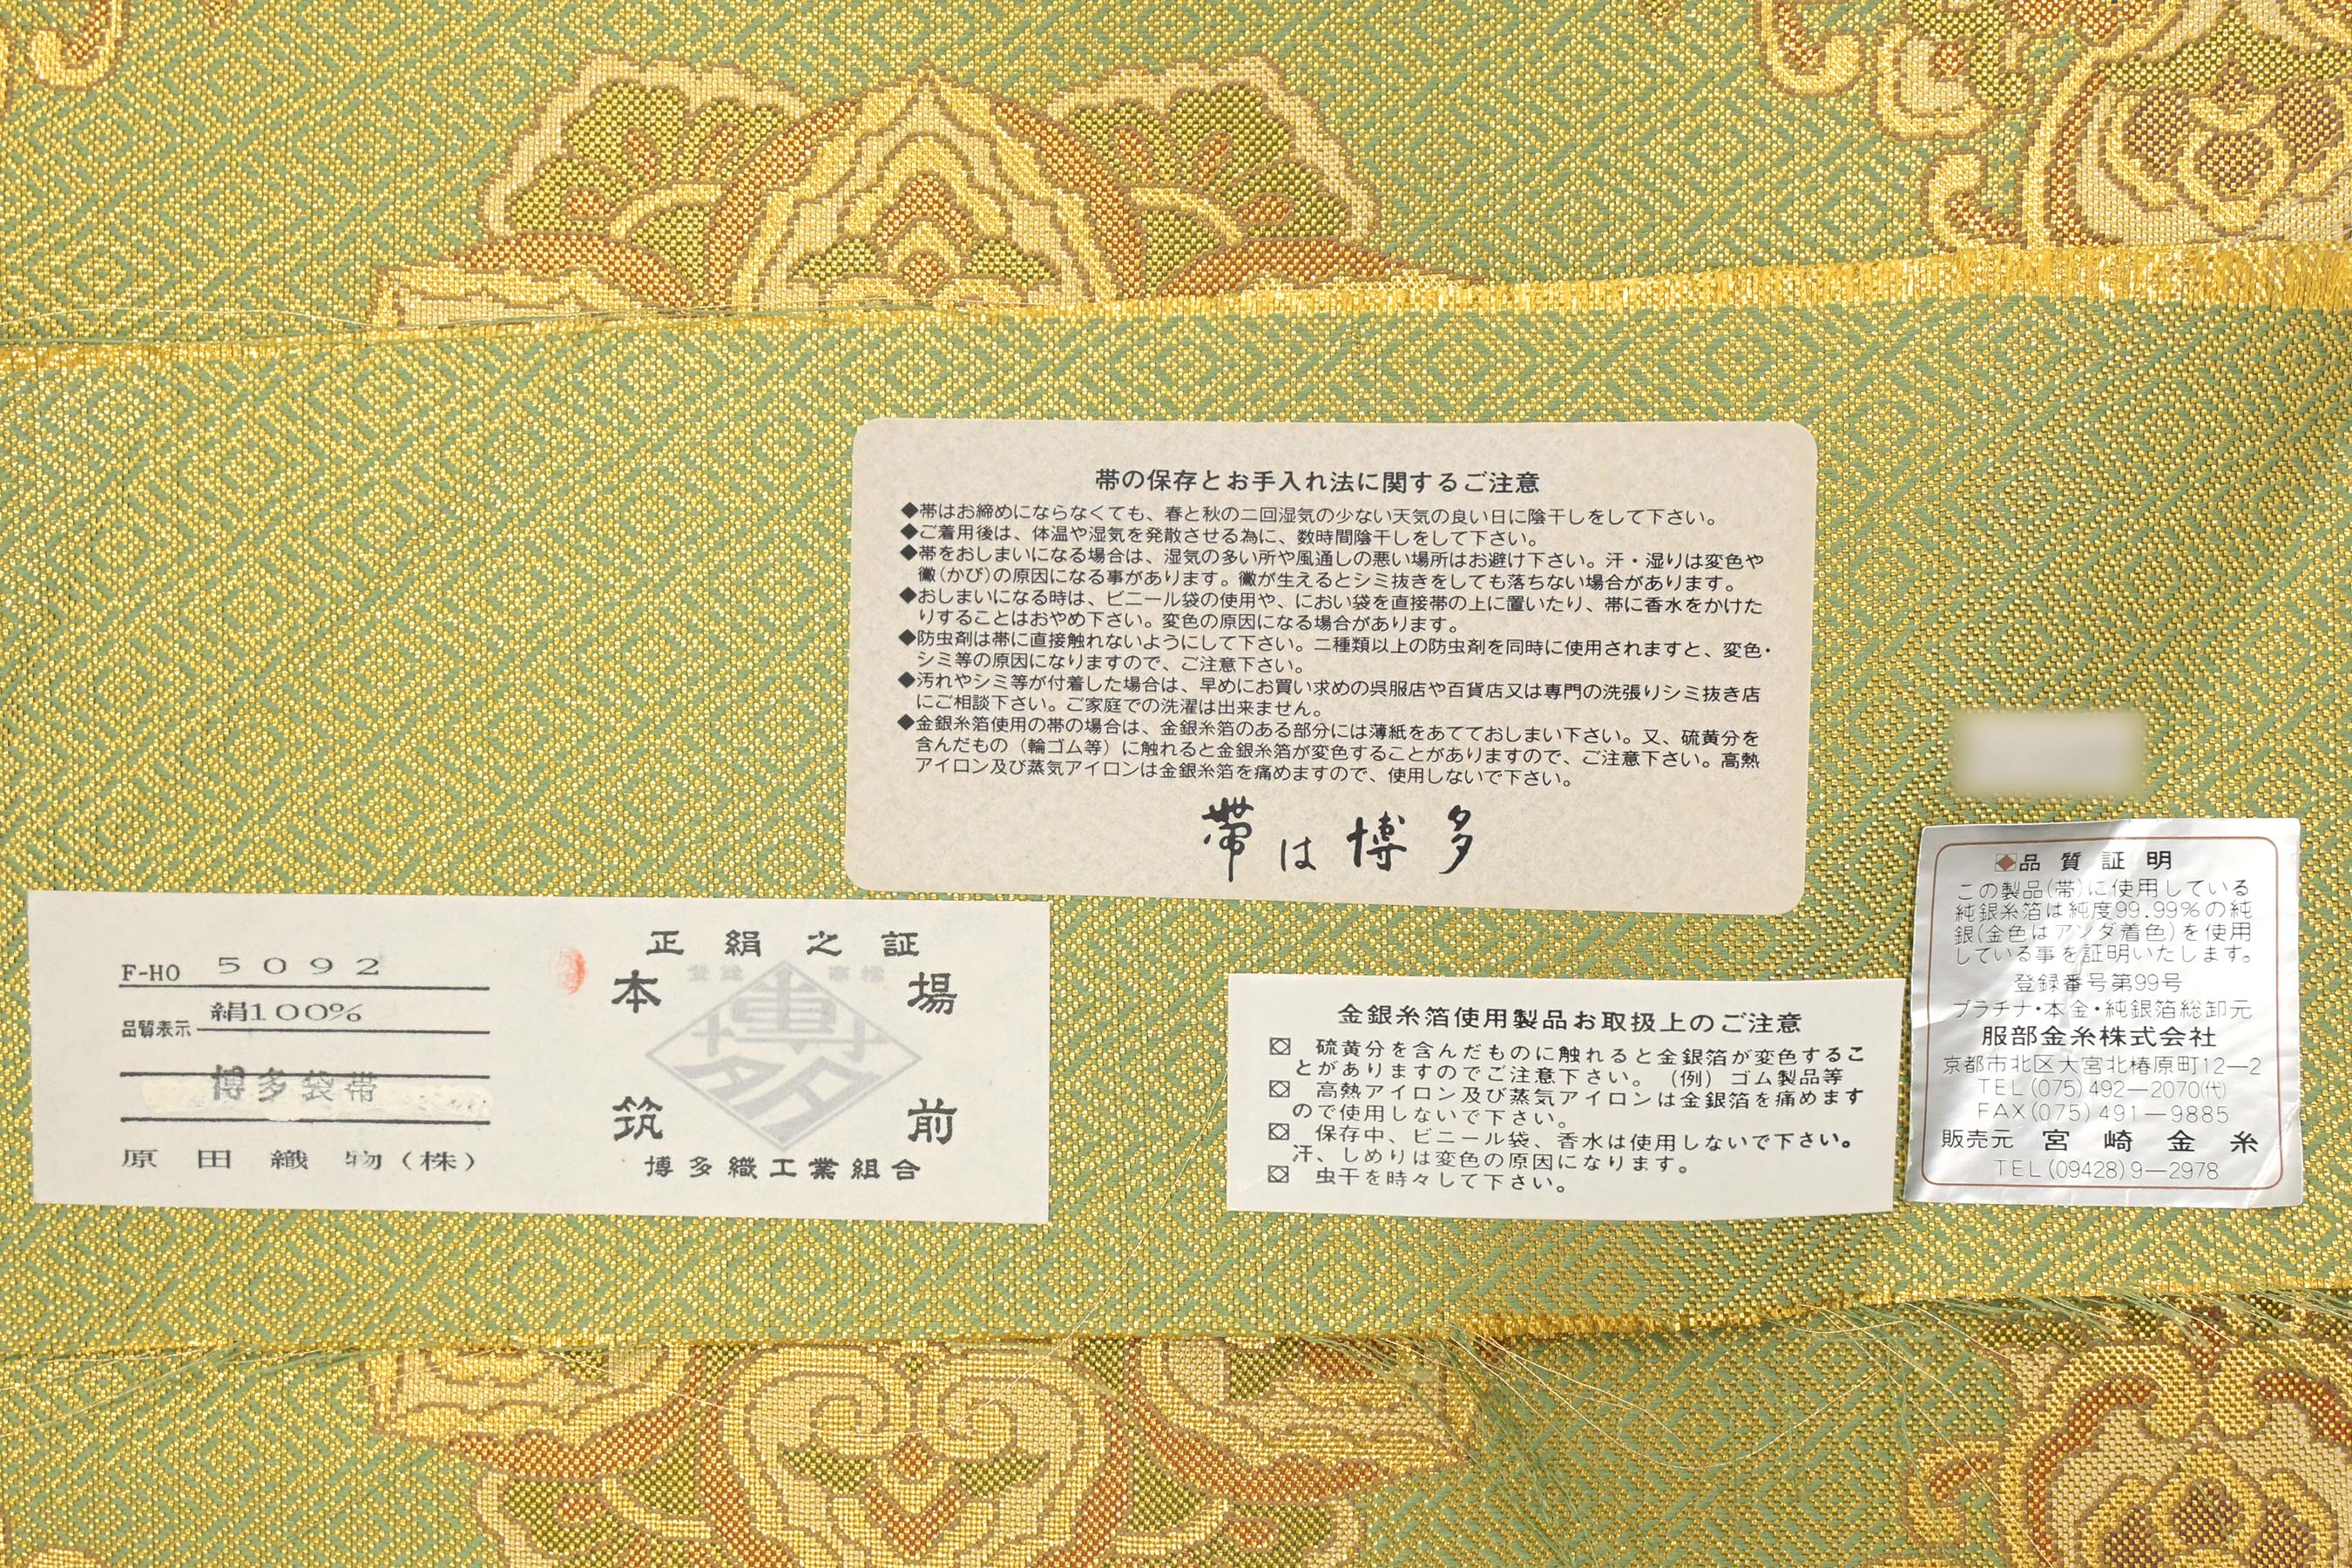 帯の保存とお手入れ法に関するご注意
◆帯はお締めにならなくても、春と秋の二回湿気の少ない天気の良い日に陰干しをして下さい。
◆ご着用後は、体温や湿気を発散させる為に、数時間陰干しをして下さい。
◆帯をおしまいになる場合は、湿気の多い所や風通しの悪い場所はお避け下さい。汗・湿りは変色や
黴(かび)の原因になる事があります。黴が生えるとシミ抜きをしても落ちない場合があります。
◆おしまいになる時は、ビニール袋の使用や、におい袋を直接帯の上に置いたり、帯に香水をかけた
りすることはおやめ下さい。変色の原因になる場合があります。
◆防虫剤は帯に直接触れないようにして下さい。二種類以上の防虫剤を同時に使用されますと、変色・
シミ等の原因になりますので、ご注意下さい。
◆汚れやシミ等が付着した場合は、早めにお買い求めの呉服店や百貨店又は専門の洗張りシミ抜き店
にご相談下さい。ご家庭での洗濯は出来ません。
◆金銀糸箔使用の帯の場合は、金銀糸箔のある部分には薄紙をあてておしまい下さい。又、硫黄分を
含んだもの（輪ゴム等）に触れると金銀糸箔が変色することがありますので、ご注意下さい。高熱
アイロン及び蒸気アイロンは金銀糸箔を痛めますので、使用しないで下さい。
帯は博多
F-HO 5092
品質表示 絹100%
博多袋帯
原田織物(株)
正絹之証
登録商標
本場
博多
筑前
博多織工業組合
金銀糸箔使用製品お取扱上のご注意
硫黄分を含んだものに触れると金銀箔が変色するこ
とがありますのでご注意下さい。（例）ゴム製品等
高熱アイロン及び蒸気アイロンは金銀箔を痛めます
ので使用しないで下さい。
保存中、ビニール袋、香水は使用しないで下さい。
汗、しめりは変色の原因になります。
虫干を時々して下さい。
品質証明
この製品(帯)に使用している
純銀糸箔は純度99.99%の純
銀(金色はアンダ着色)を使用
している事を証明いたします。
登録番号第99号
プラチナ・本金・純銀箔総卸元
服部金糸株式会社
京都市北区大宮北椿原町12—2
TEL(075)492—2070(代)
FAX(075)491—9885
販売元 宮崎金糸
TEL(09428)9—2978